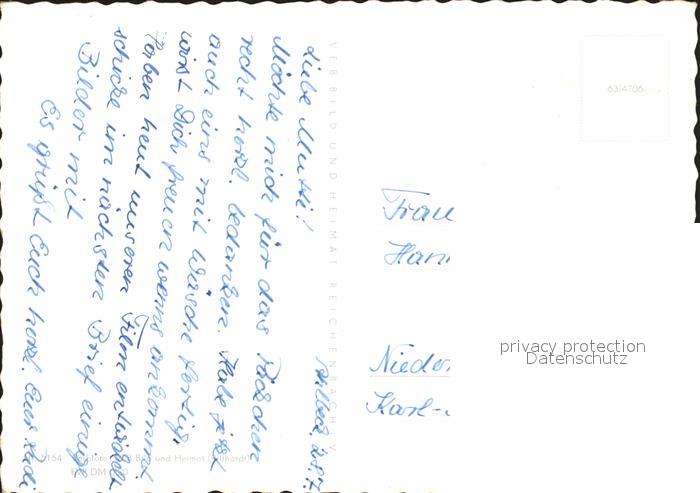 Liebe Mutti!
Möchte mich für das Päckchen
recht herzl. bedanken. Habe jetzt
auch eins mit Wäsche fertig,
wirst Dich freuen wenns ankommt.
Haben heut unseren Film entwickelt
schicke im nächsten Brief einige
Bilder mit
Es grüßt Euch herzl. Euer
VEB BILD UND HEIMAT REICHENBACH I. V.
63/4706
Frau
Nieder
Karl-
privacy protection
Datenschutz
und Heimat
DM